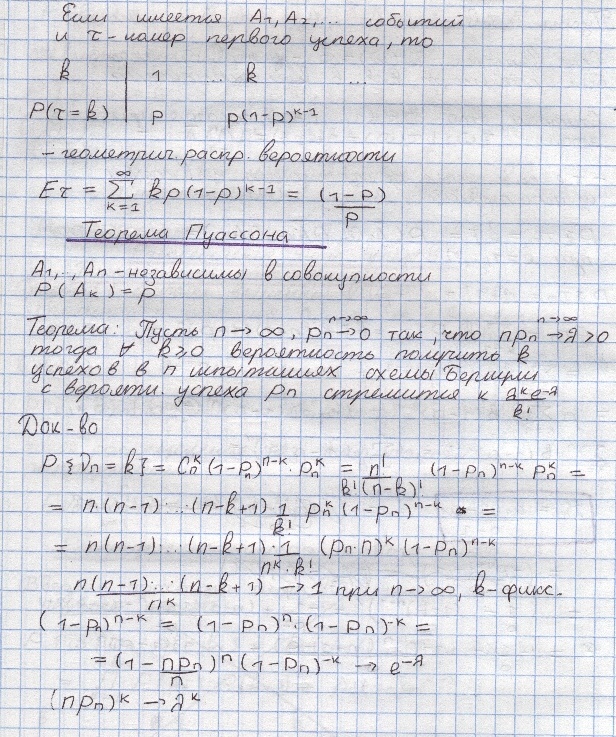 Если имеется A₁, A₂, ... событий
и τ-номер первого успеха, то
k | 1 ... k ...
P(τ=k) | p p(1-p)^{k-1}
- геометрич. распр. вероятности
Eτ = ∑_{k=1}^{∞} kp(1-p)^{k-1} = (1-p)/p
Теорема Пуассона
A₁,..,Aₙ - независимы в совокупности
P(Aₖ) = p
Теорема: Пусть n→∞, pₙ →^{n→∞} 0 так, что npₙ →^{n→∞} λ>0
тогда ∀ k≥0 вероятность получить k
успехов в n испытаниях схемы Бернулли
с вероятн. успеха pₙ стремится к λ^k e^{-λ}/k!
Док-во
P{νₙ=k} = Cₙ^k (1-pₙ)^{n-k} · pₙ^k = n!/(k!(n-k)!) (1-pₙ)^{n-k} pₙ^k =
= n·(n-1)·...·(n-k+1) 1/k! pₙ^k (1-pₙ)^{n-k} =
= n(n-1)·...·(n-k+1)·1/(n^k·k!) (pₙ·n)^k (1-pₙ)^{n-k}
n(n-1)·...·(n-k+1)/n^k → 1 при n→∞, k-фикс.
(1-pₙ)^{n-k} = (1-pₙ)^n · (1-pₙ)^{-k} =
= (1 - npₙ/n)^n (1-pₙ)^{-k} → e^{-λ}
(npₙ)^k → λ^k